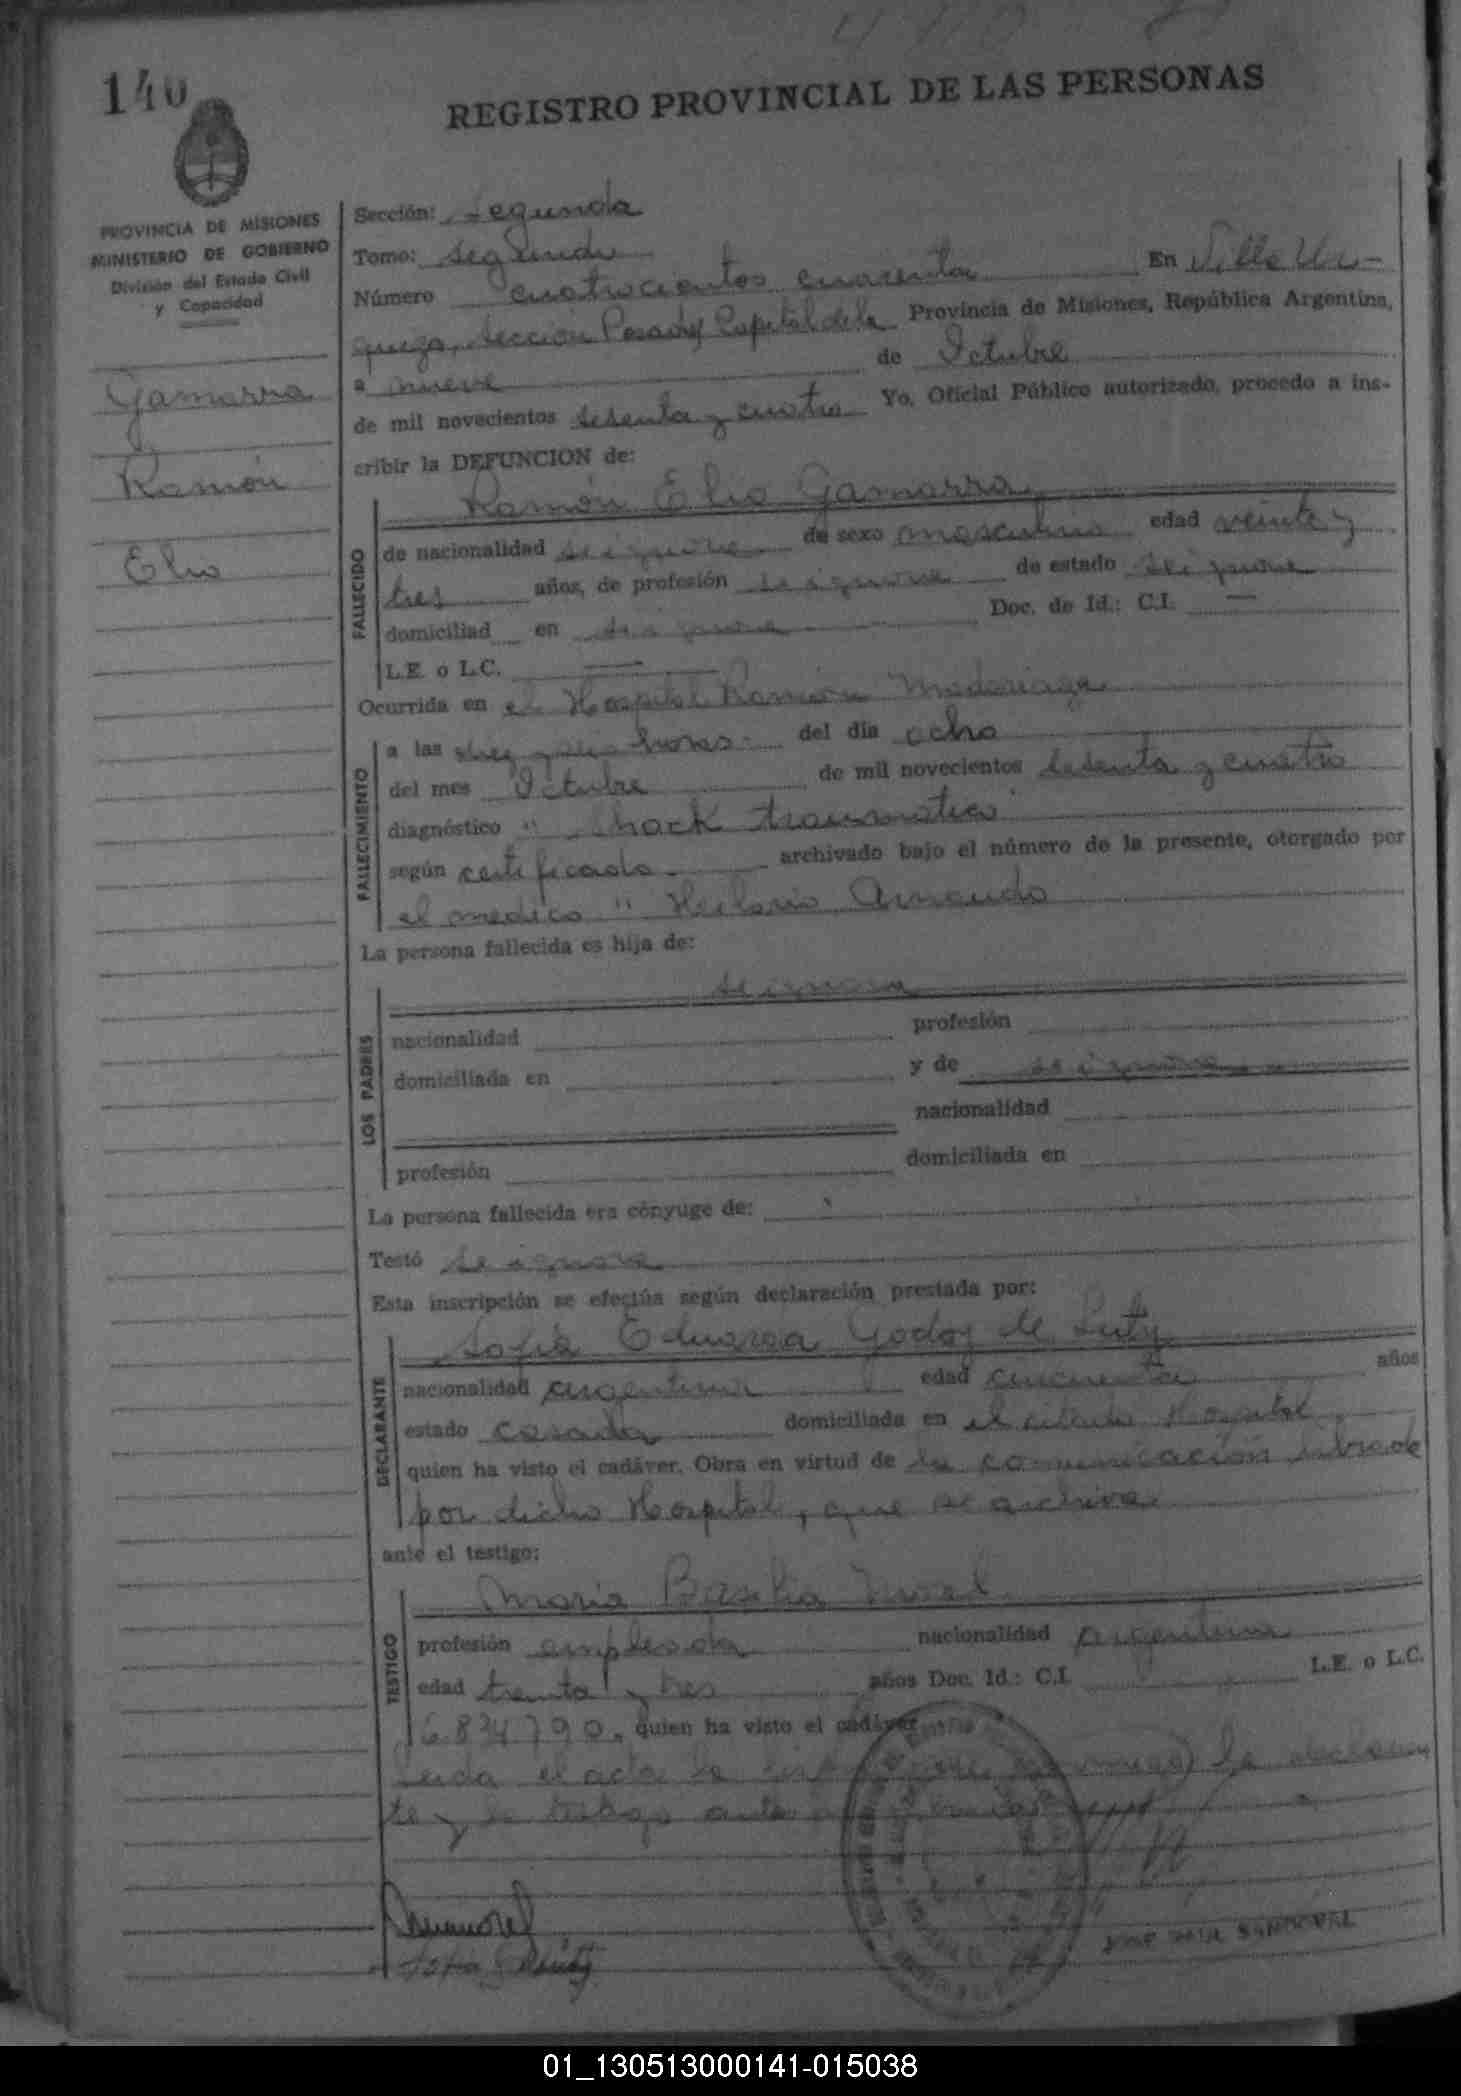 140
REGISTRO PROVINCIAL DE LAS PERSONAS
PROVINCIA DE MISIONES
MINISTERIO DE GOBIERNO
División del Estado Civil
y Capacidad
Gamarra
Ramón
Elio
Sección: Segunda
Tomo: Segundo
Número cuatrocientos cuarenta En Villa Ur-
quiza, Sección Posadas Capital de la Provincia de Misiones, República Argentina,
a nueve de Octubre
de mil novecientos sesenta y cuatro Yo, Oficial Público autorizado, procedo a ins-
cribir la DEFUNCION de:
Ramón Elio Gamarra
FALLECIDO
de nacionalidad se ignora de sexo masculino edad veinte y
tres años, de profesión se ignora de estado se ignora
domiciliad en se ignora Doc. de Id.: C.I. —
L.E. o L.C. —
Ocurrida en el Hospital Ramón Madariaga
FALLECIMIENTO
a las diez y seis horas. del día ocho
del mes Octubre de mil novecientos sesenta y cuatro
diagnóstico " shock traumatico
según certificado archivado bajo el número de la presente, otorgado por
el medico " Hilario Arnaudo
La persona fallecida es hija de:
LOS PADRES
se ignora
nacionalidad profesión
domiciliada en y de se ignora
nacionalidad
profesión domiciliada en
La persona fallecida era cónyuge de:
Testó se ignora
Esta inscripción se efectúa según declaración prestada por:
DECLARANTE
Sofia Eduarda Godoy de Luty
nacionalidad argentina edad cincuenta años
estado casada domiciliada en el citado Hospital
quien ha visto el cadáver. Obra en virtud de la comunicación librada
por dicho Hospital, que se archiva
ante el testigo:
TESTIGO
Maria Basilia Morel
profesión empleada nacionalidad argentina
edad treinta y tres años Doc. Id.: C.I. L.E. o L.C.
6.834.790. quien ha visto el cadáver
Leida el acta la conmigo la declaran
te y la testigo
JOSE SANDOVAL
01_130513000141-015038